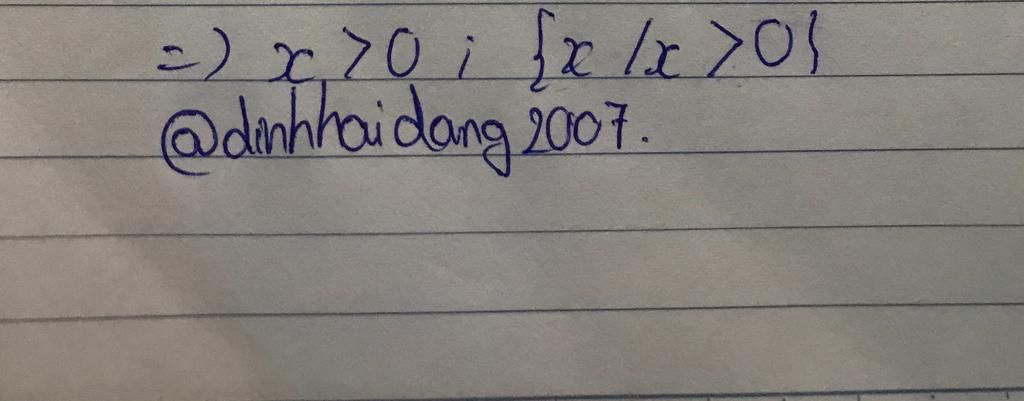 => x > 0 ; {x / x > 0}
@dinhhaidang2007.